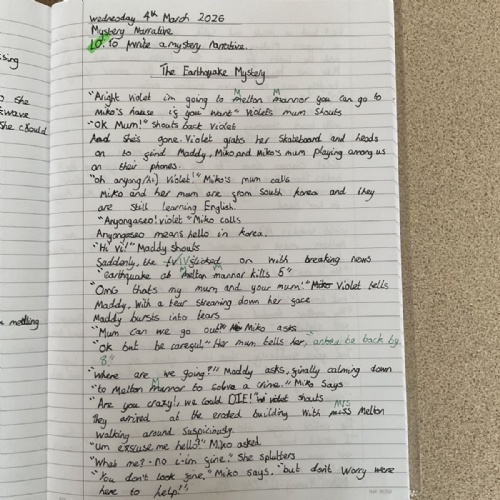 Wednesday 4th March 2026
Mystery Narrative
LO: To write a mystery narrative.
The Earthquake Mystery
"Aright Violet im going to Melton Mannor you can go to
Miko's house if you want" Violet's mum shouts
"OK Mum!" shouts back Violet
And she's gone. Violet grabs her skateboard and heads
on to find Maddy, Miko and Miko's mum playing among us
on their phones.
"Oh anyong(hi) Violet!" Miko's mum calls
Miko and her mom are from South Korea and they
are still learning English.
"Anyongaseo! violet" Miko calls
Anyongaseo means hello in Korea.
"Hi Vi!" Maddy shouts
Suddenly, the TV flicked on with breaking news
"earthquake at Melton Mannor kills 5"
"OMG thats my mum and your mum!" Violet tells
Maddy, with a tear streaming down her face
Maddy bursts into tears
"Mum can we go out?" Miko asks
"OK but be careful," Her mum tells her, be back by
8."
"Where are we going?" Maddy asks, finally calming down
"to Melton Mannor to solve a crime." Miko says
"Are you crazy!, we could DIE!" violet shouts
They arrived at the eroded building with Miss Melton
walking around suspiciously.
"Um excuse me hello?" Miko asked
"What me? - no i-im fine." She splutters
"You don't look fine," Miko says, "but don't worry were
here to help!"
ising
o she
swave
She could
melting